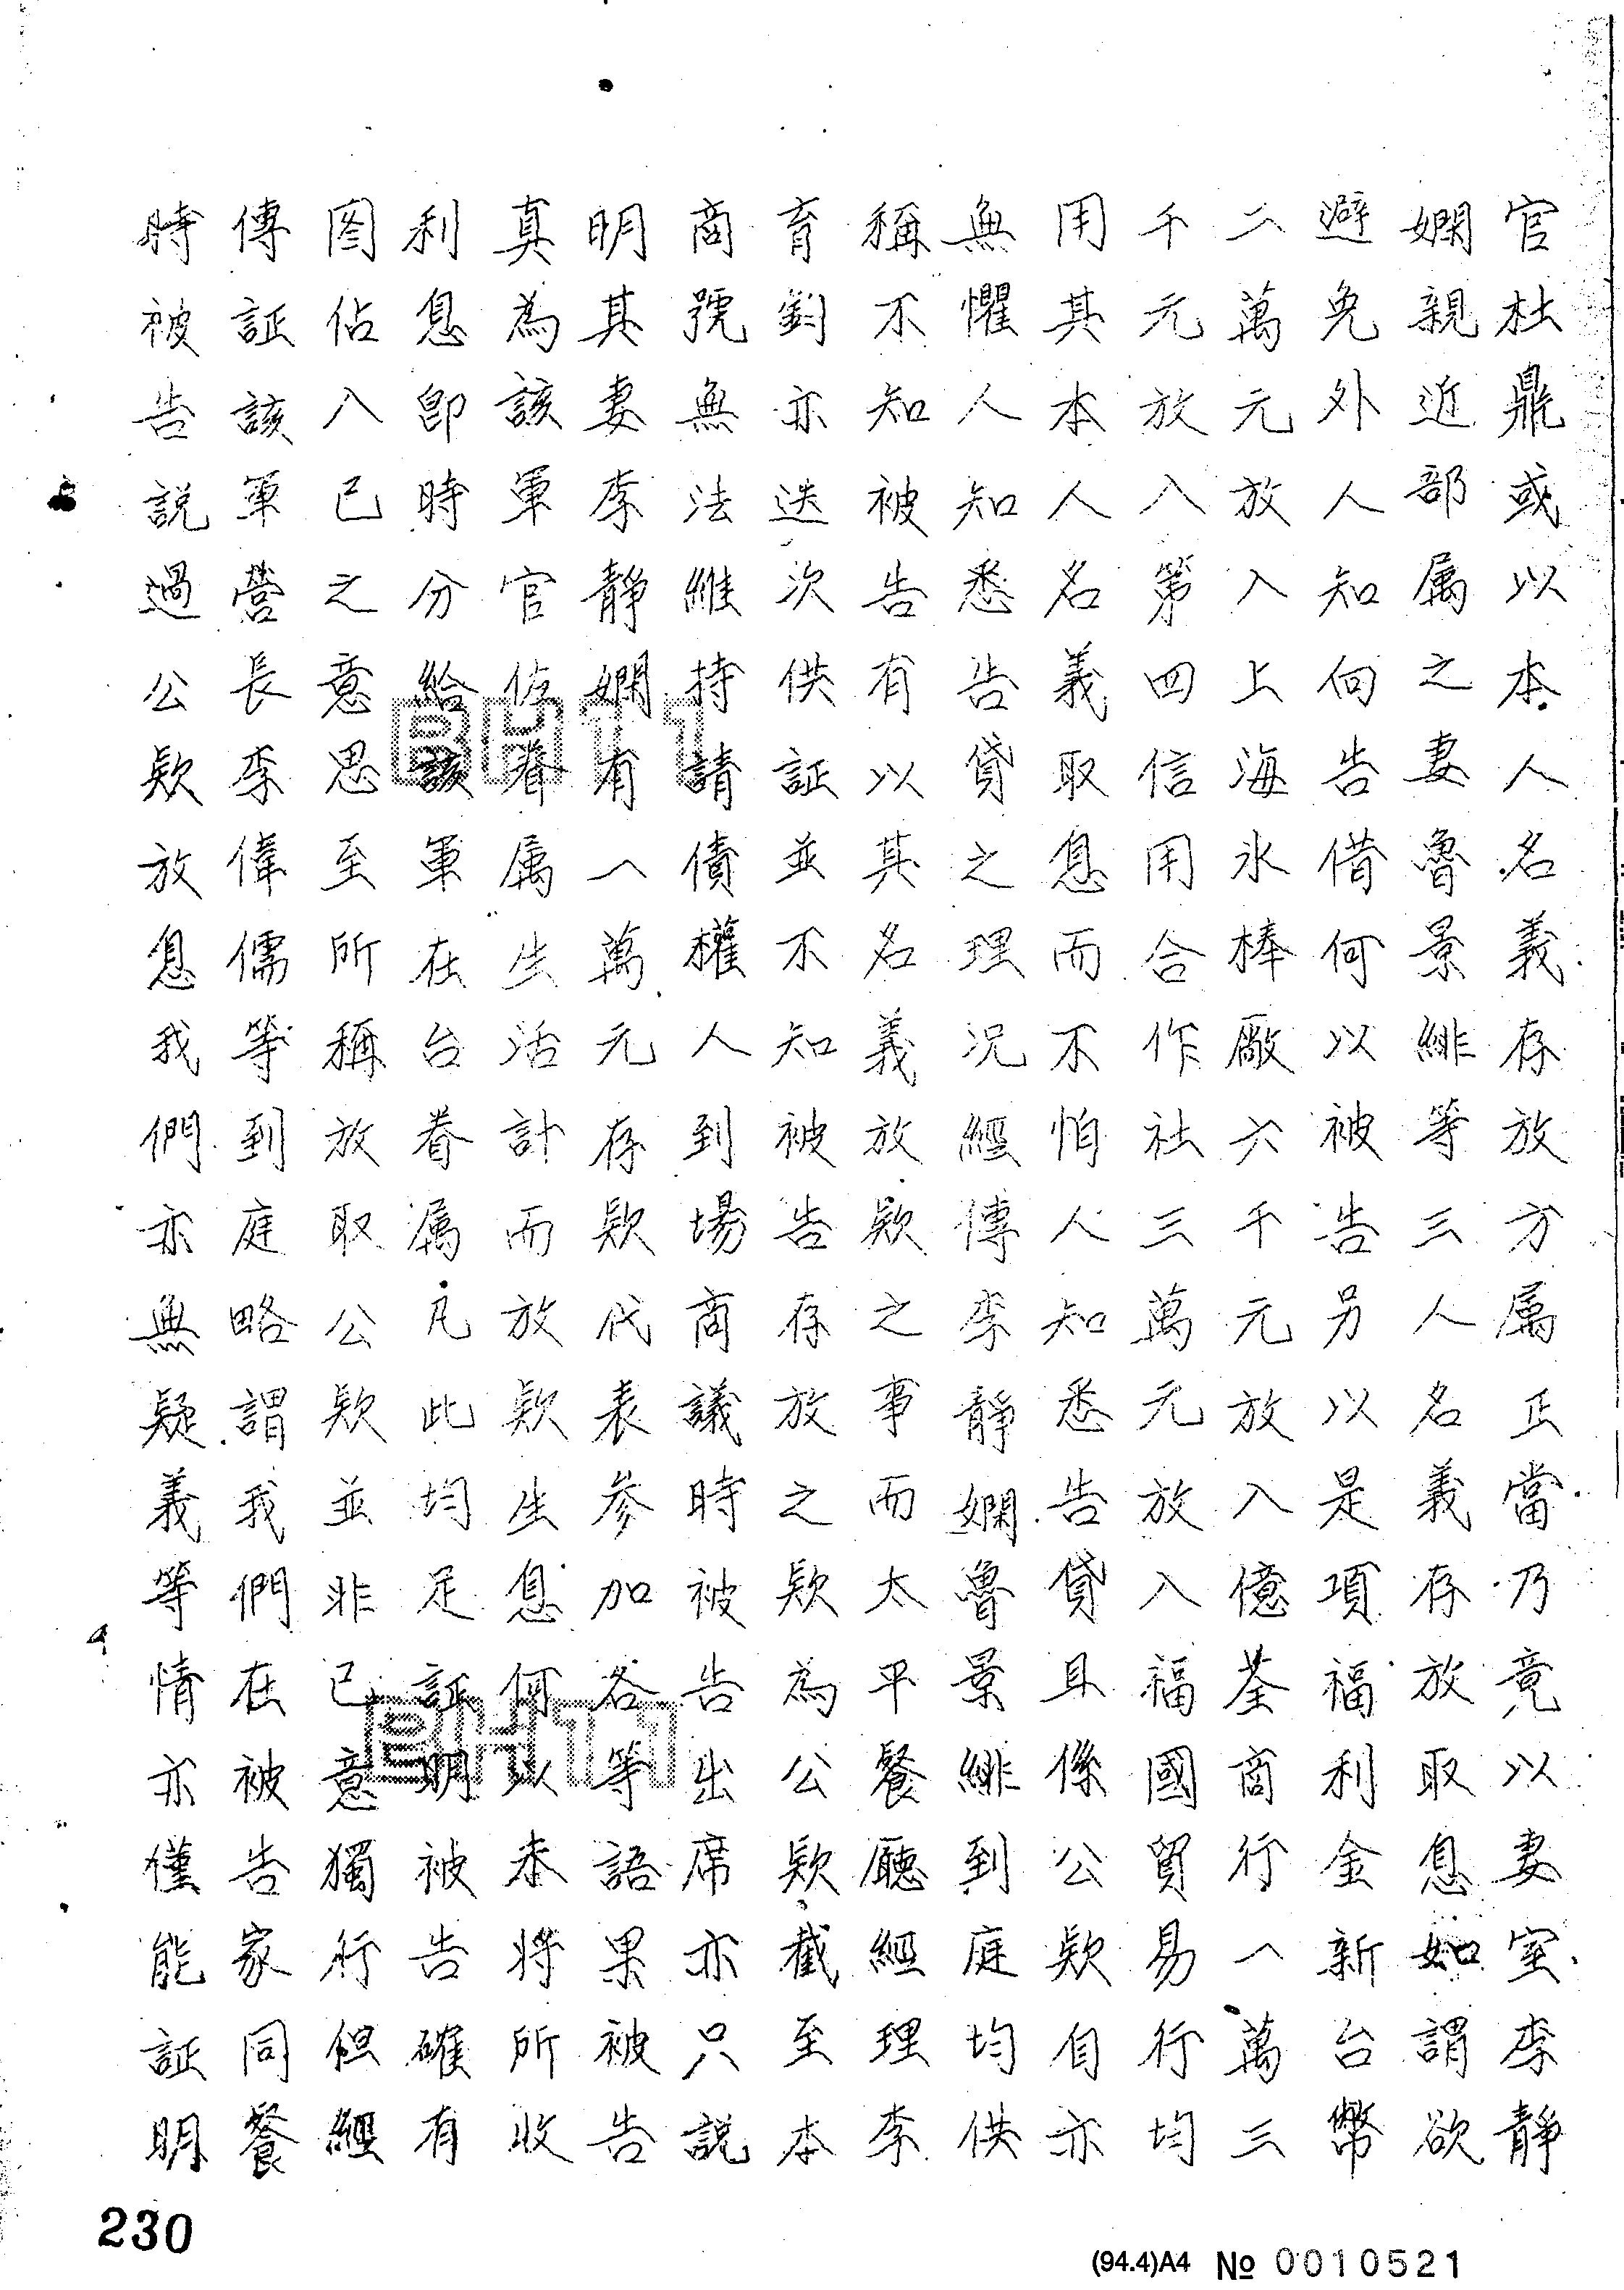 官杜鼎或以本人名義存放方属正當乃竟以妻室李靜
嫻親近部属之妻魯景緋等三人名義存放取息如謂欲
避免外人知向告借何以被告另以是項福利金新台幣
二萬元放入上海水棒廠六千元放入億荃商行一萬三
千元放入第四信用合作社三萬元放入福國貿易行均
用其本人名義取息而不怕人知悉告貸且係公欵自亦
無懼人知悉告貸之理況經傳李靜嫻魯景緋到庭均供
稱不知被告有以其名義放欵之事而太平餐廳經理李
育釗亦迭次供証並不知被告存放之欵為公欵截至本
商號無法維持請債權人到場商議時被告出席亦只説
明其妻李靜嫻有一萬元存欵代表參加各等語果被告
真為該軍官佐眷属生活計而放欵生息何以未將所收
利息即時分給該軍在台眷属凡此均足証明被告確有
图佔入已之意思至所稱放取公欵並非已意獨行但經
傳証該軍營長李偉儒等到庭略謂我們在被告家同餐
時被告説過公欵放息我們亦無疑義等情亦僅能証明
BH11
BH11
230
(94.4)A4 № 0010521